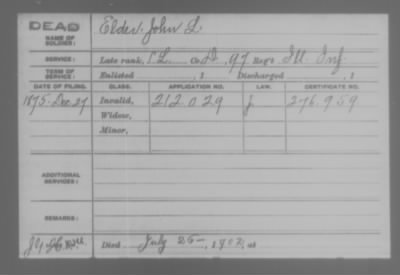 DEAD
NAME OF SOLDIER: Elder, John L.
SERVICE: Late rank, 1 L. Co. D, 97 Reg't Ill. Inf.
TERM OF SERVICE: Enlisted , 1 Discharged , 1
DATE OF FILING. CLASS. APPLICATION NO. LAW. CERTIFICATE NO.
1875. Dec. 27 Invalid, 212.029 J. 276.959
Widow,
Minor,
ADDITIONAL SERVICES:
REMARKS:
Died July 25-, 1902, at